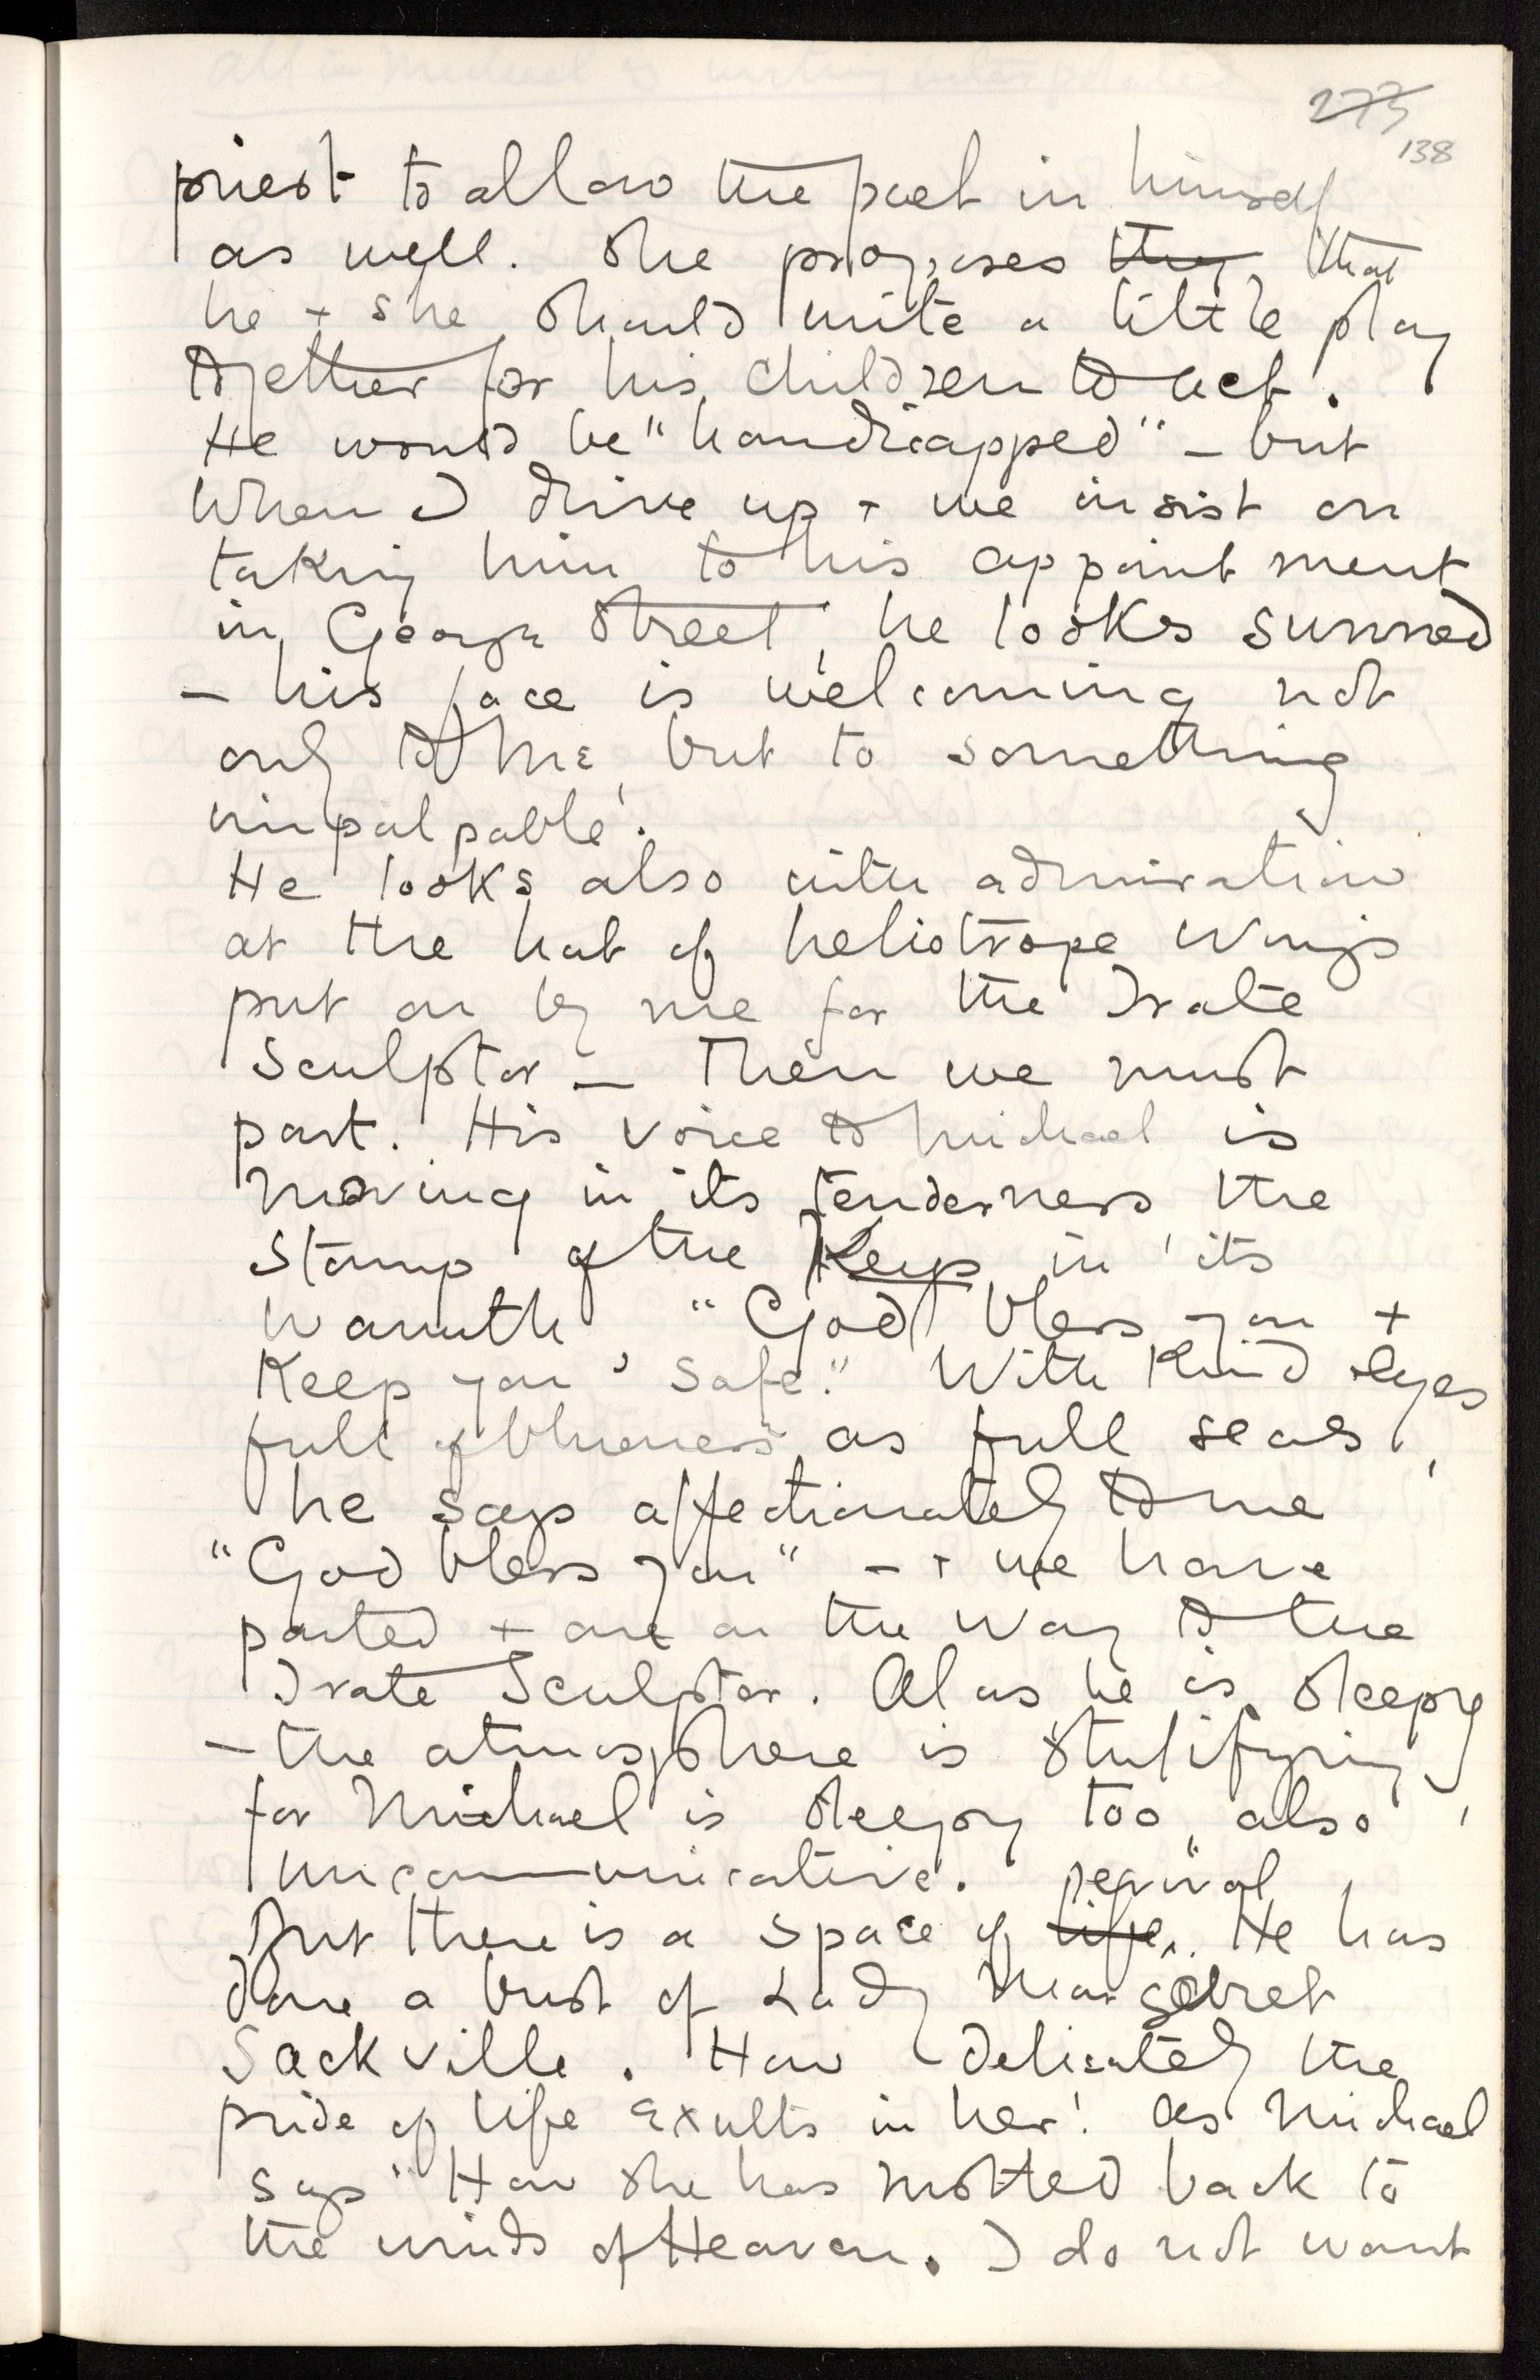 273
138
priest to allow the poet in himself
as well. She proposes they that
he + she should write a little play
together for his children to act.
He would be "handicapped" – but
When I drive up + we insist on
taking him to his appointment
in George Street, he looks sunned
– his face is welcoming not
only to me, but to something
impalpable.
He looks also with admiration
at the hat of heliotrope wings
put on by me for the Irate
Sculptor – Then we must
part. His voice to Michael is
moving in its tenderness the
stamp of the Keeps in its
warmth "God bless you +
Keep you safe." With Kind eyes
full of blueness as full seas,
he says affectionately to me
"God bless you" – + we have
parted + are on the way to the
Irate Sculptor. Alas he is sleepy
– the atmosphere is stultifying
for Michael is sleepy too, also
uncommunicative. revival
But there is a space of life. He has
done a bust of Lady Margaret
Sackville. How delicately the
pride of life exults in her! As Michael
says "How she has trotted back to
the winds of Heaven. I do not want